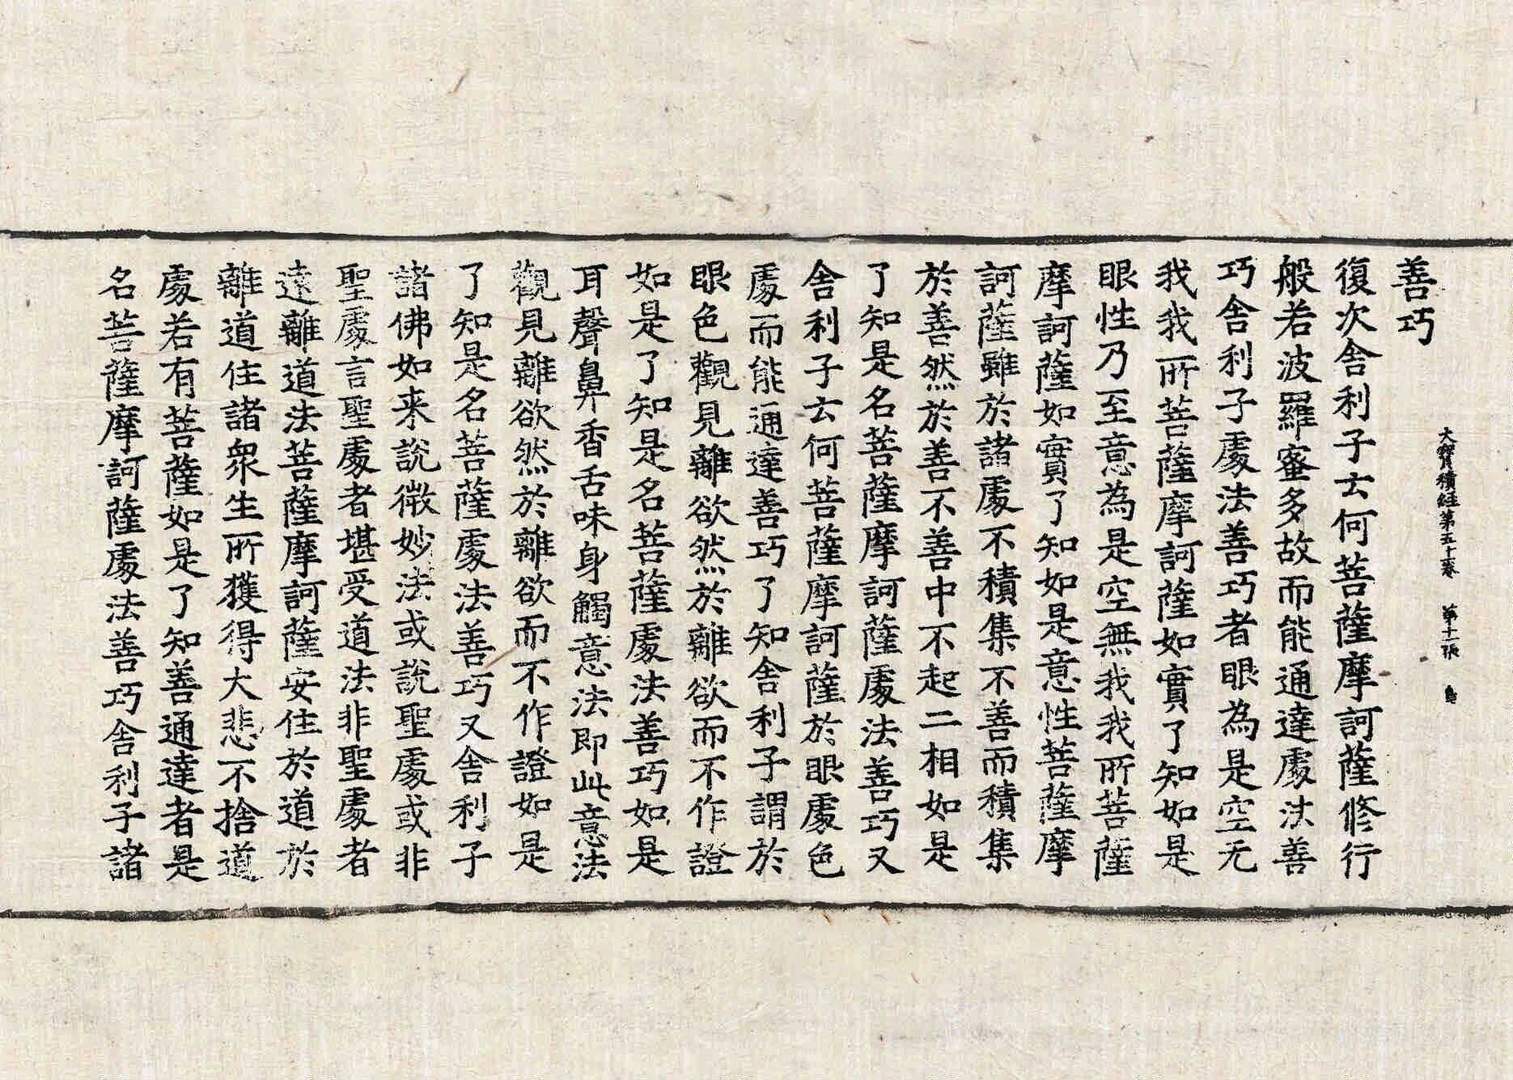 大寶積經第五十卷　第十一張　鳥
善巧
復次舍利子云何菩薩摩訶薩修行
般若波羅蜜多故而能通達處法善
巧舍利子處法善巧者眼為是空无
我我所菩薩摩訶薩如實了知如是
眼性乃至意為是空無我我所菩薩
摩訶薩如實了知如是意性菩薩摩
訶薩雖於諸處不積集不善而積集
於善然於善不善中不起二相如是
了知是名菩薩摩訶薩處法善巧又
舍利子云何菩薩摩訶薩於眼處色
處而能通達善巧了知舍利子謂於
眼色觀見離欲然於離欲而不作證
如是了知是名菩薩處法善巧如是
耳聲鼻香舌味身觸意法即此意法
觀見離欲然於離欲而不作證如是
了知是名菩薩處法善巧又舍利子
諸佛如来說微妙法或說聖處或非
聖處言聖處者堪受道法非聖處者
遠離道法菩薩摩訶薩安住於道於
離道住諸眾生所獲得大悲不捨道
處若有菩薩如是了知善通達者是
名菩薩摩訶薩處法善巧舍利子諸